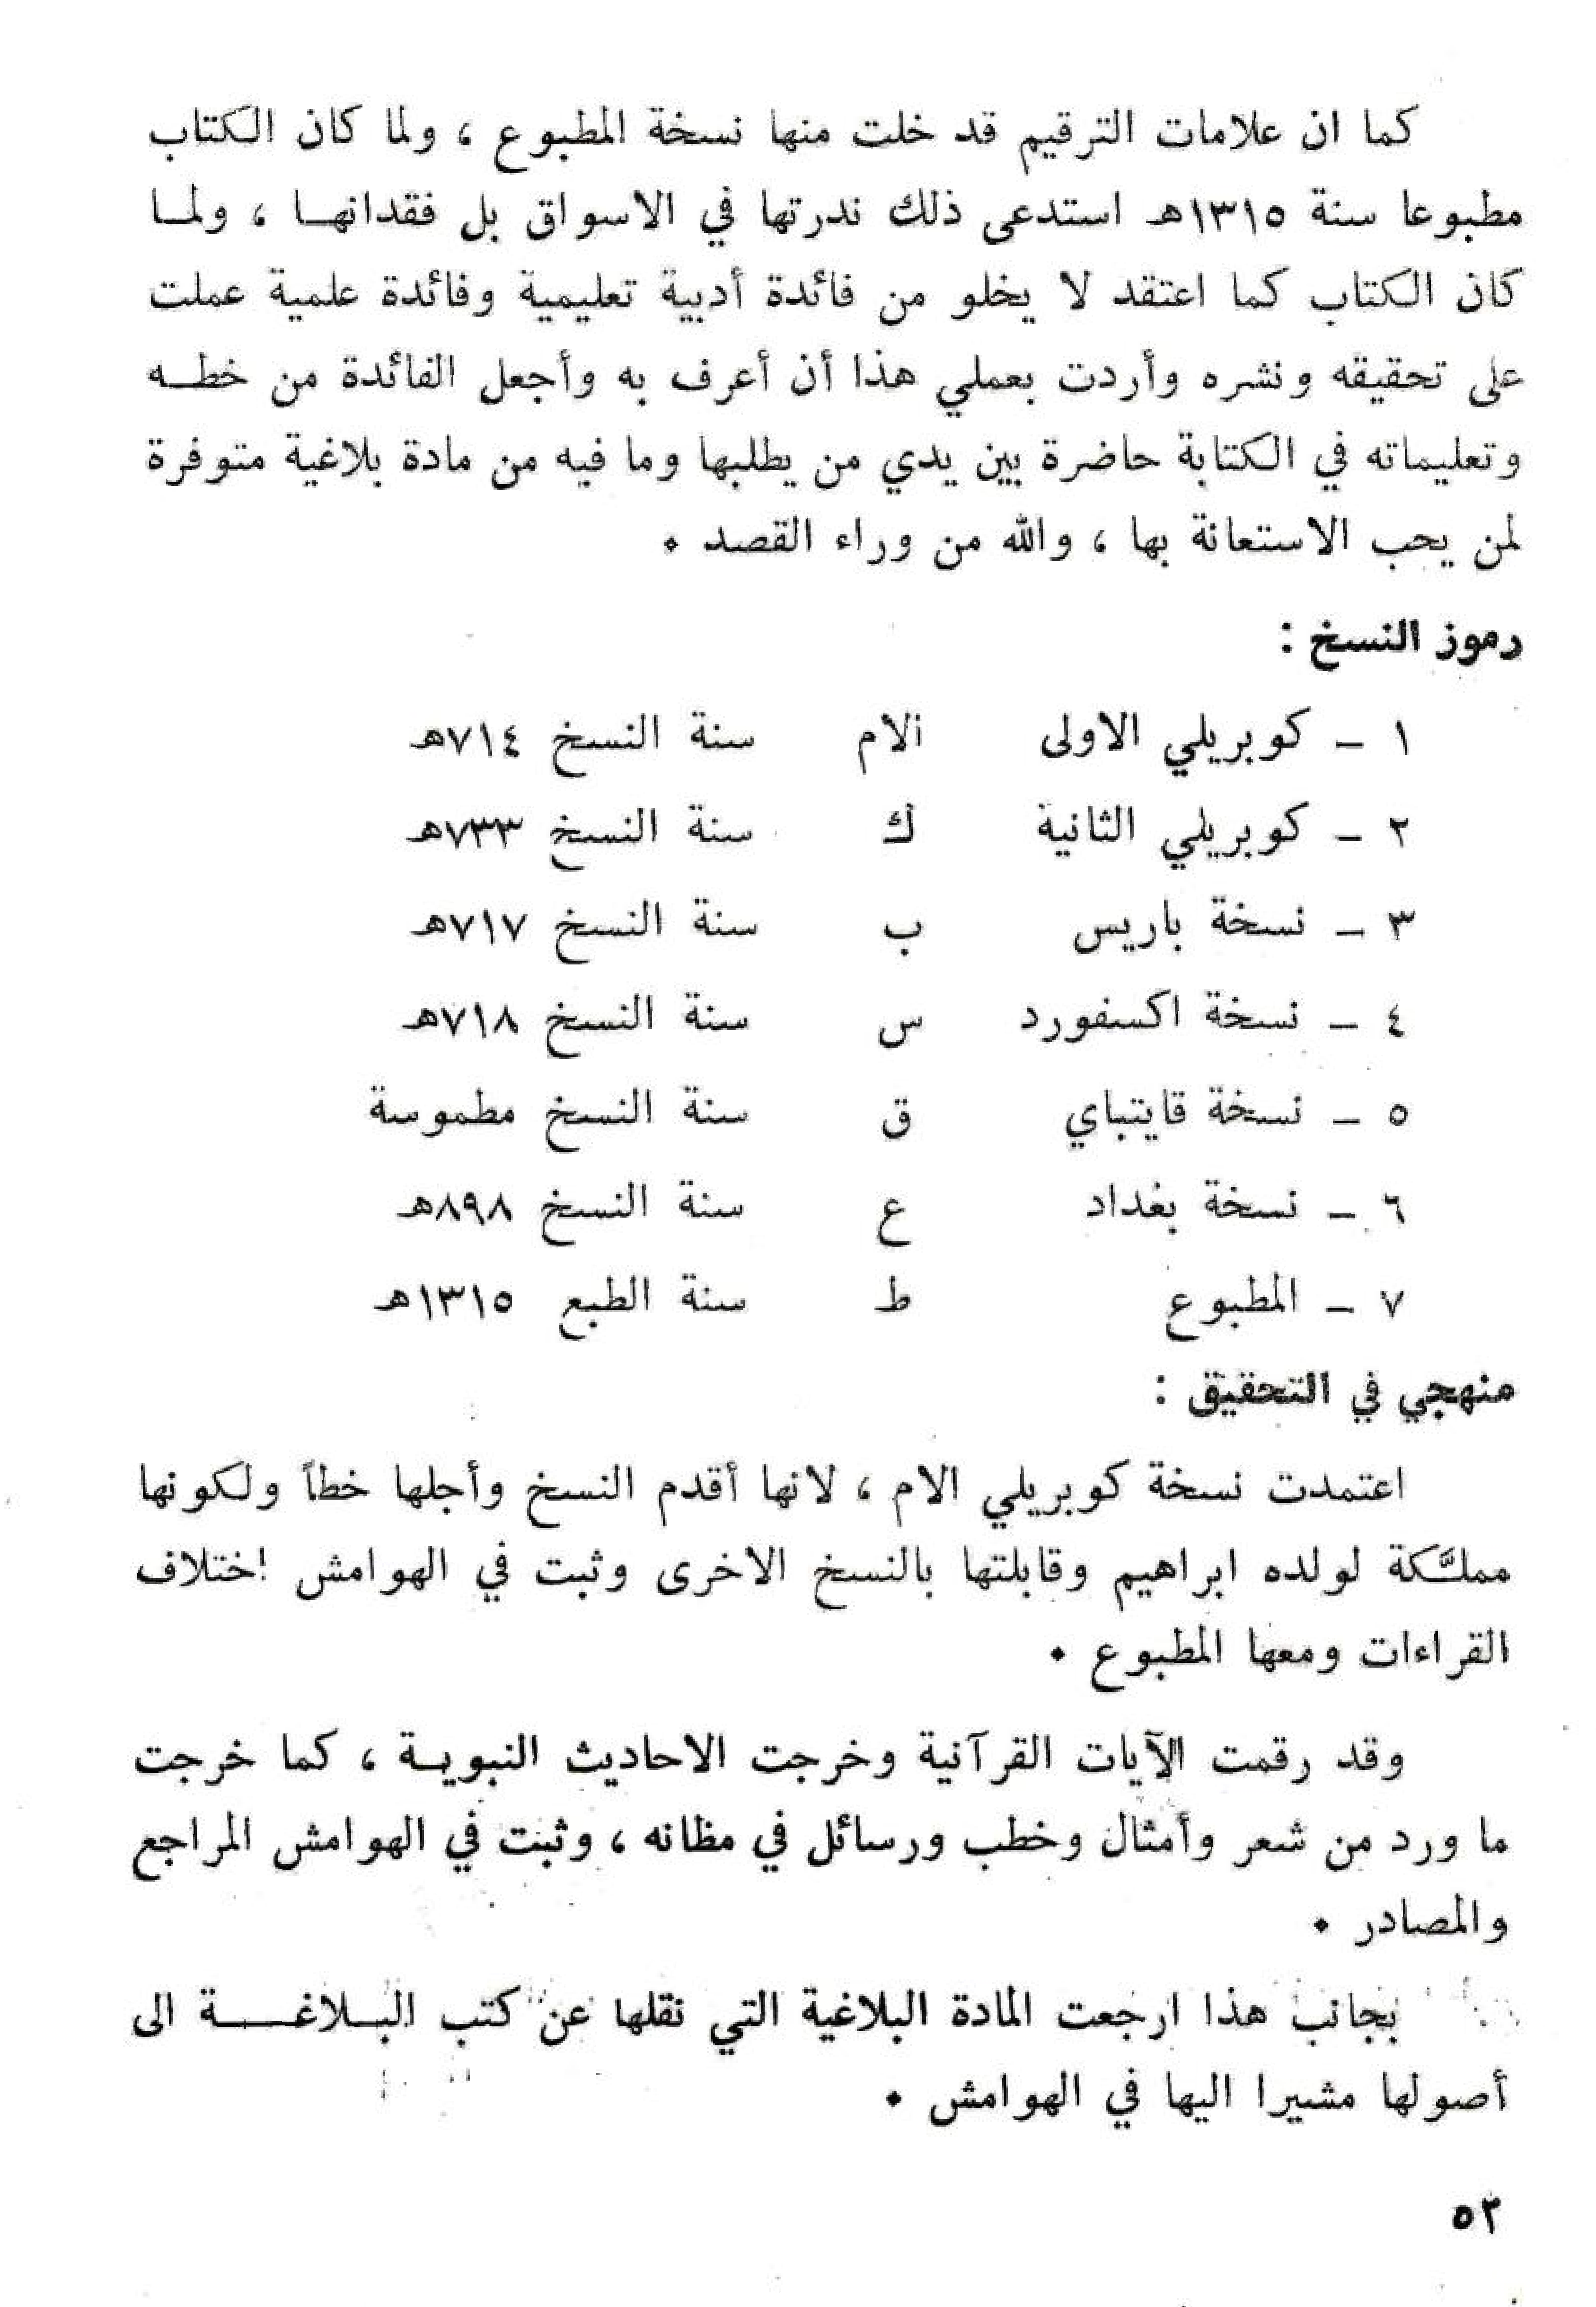 كما ان علامات الترقيم قد خلت منها نسخة المطبوع ، ولما كان الكتاب
مطبوعا سنة ١٣١٥هـ استدعى ذلك ندرتها في الاسواق بل فقدانهـا ، ولمـا
كان الكتاب كما اعتقد لا يخلو من فائدة أدبية تعليمية وفائدة علمية عملت
على تحقيقه ونشره وأردت بعملي هذا أن أعرف به وأجعل الفائدة من خطـه
وتعليماته في الكتابة حاضرة بين يدي من يطلبها وما فيه من مادة بلاغية متوفرة
لمن يحب الاستعانة بها ، والله من وراء القصد .
رموز النسخ :
١ ـ كوبريلي الاولى الام سنة النسخ ٧١٤هـ
٢ ـ كوبريلي الثانية ك سنة النسخ ٧٣٣هـ
٣ ـ نسخة باريس ب سنة النسخ ٧١٧هـ
٤ ـ نسخة اكسفورد س سنة النسخ ٧١٨هـ
٥ ـ نسخة قايتباي ق سنة النسخ مطموسة
٦ ـ نسخة بغداد ع سنة النسخ ٨٩٨هـ
٧ ـ المطبوع ط سنة الطبع ١٣١٥هـ
منهجي في التحقيق :
اعتمدت نسخة كوبريلي الام ، لانها أقدم النسخ وأجلها خطاً ولكونها
مملَّكة لولده ابراهيم وقابلتها بالنسخ الاخرى وثبت في الهوامش اختلاف
القراءات ومعها المطبوع .
وقد رقمت الآيات القرآنية وخرجت الاحاديث النبويـة ، كما خرجت
ما ورد من شعر وأمثال وخطب ورسائل في مظانه ، وثبت في الهوامش المراجع
والمصادر .
بجانب هذا ارجعت المادة البلاغية التي نقلها عن كتب البـلاغـــة الى
أصولها مشيرا اليها في الهوامش .
٥٢